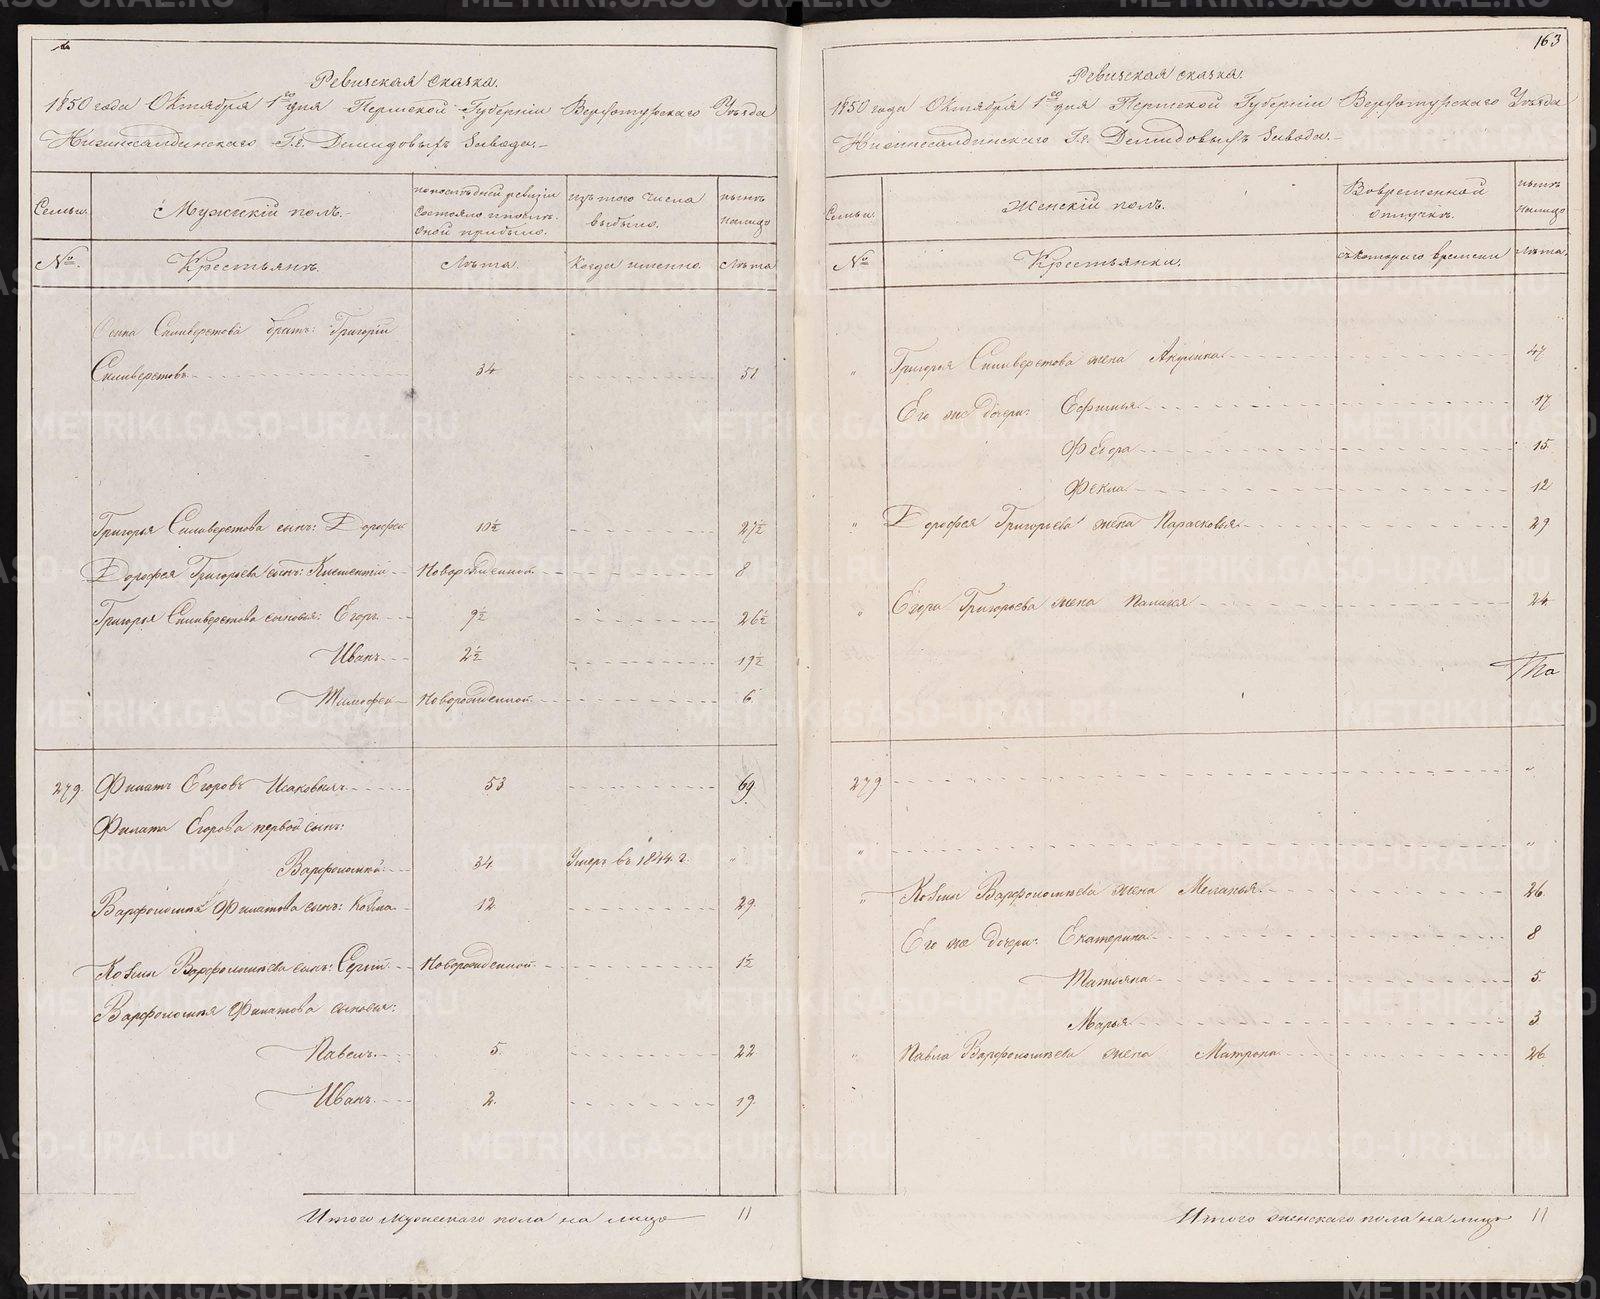 Ревизская сказка.
1850 года Октября 1го дня Пермской Губерніи Верхотурскаго Уѣзда
Нижнесалдинскаго Гг. Демидовыхъ Завода.
Семьи. Мужскій полъ. по послѣдней ревизіи состояло и послѣ оной прибыло. изъ того числа выбыло. нынѣ налицо
№ Крестьянъ. Лѣта. Когда именно. Лѣта
Силиверстова братъ: Григорій
Силиверстовъ 34 51
Григорья Силиверстова сынъ: Дорофей 10½ 27½
Дорофея Григорьева сынъ: Климентій Новорожденной 8
Григорья Силиверстова сыновья: Егоръ 9½ 26½
Иванъ 2½ 19½
Тимофей Новорожденной 6
279 Филатъ Егоровъ Исаковыхъ 53 69
Филата Егорова первой сынъ:
Варфоломей 34 Умеръ въ 1844 г. "
Варфоломея Филатова сынъ: Козма 12 29
Козмы Варфоломѣева сынъ: Сергій Новорожденной 1½
Варфоломея Филатова сыновья:
Павелъ 5 22
Иванъ 2 19
Итого мужескаго пола на лицо 11
163
Ревизская сказка.
1850 года Октября 1го дня Пермской Губерніи Верхотурскаго Уѣзда
Нижнесалдинскаго Гг. Демидовыхъ Завода.
Семьи. Женскій полъ. Во временной отлучкѣ. нынѣ налицо
№ Крестьянки. съ котораго времени Лѣта.
" Григорья Силиверстова жена Акулина 47
Его же дочери: Еефимья 17
Федора 15
Фекла 12
" Дорофея Григорьева жена Парасковья 29
" Егора Григорьева жена Палагея 24
На
279 "
" "
" Козмы Варфоломѣева жена Меланья 26
Его же дочери: Екатерина 8
Татьяна 5
Марья 3
" Павла Варфоломѣева жена Матрона 26
Итого женскаго пола на лицо 11
METRIKI.GASO-URAL.RU